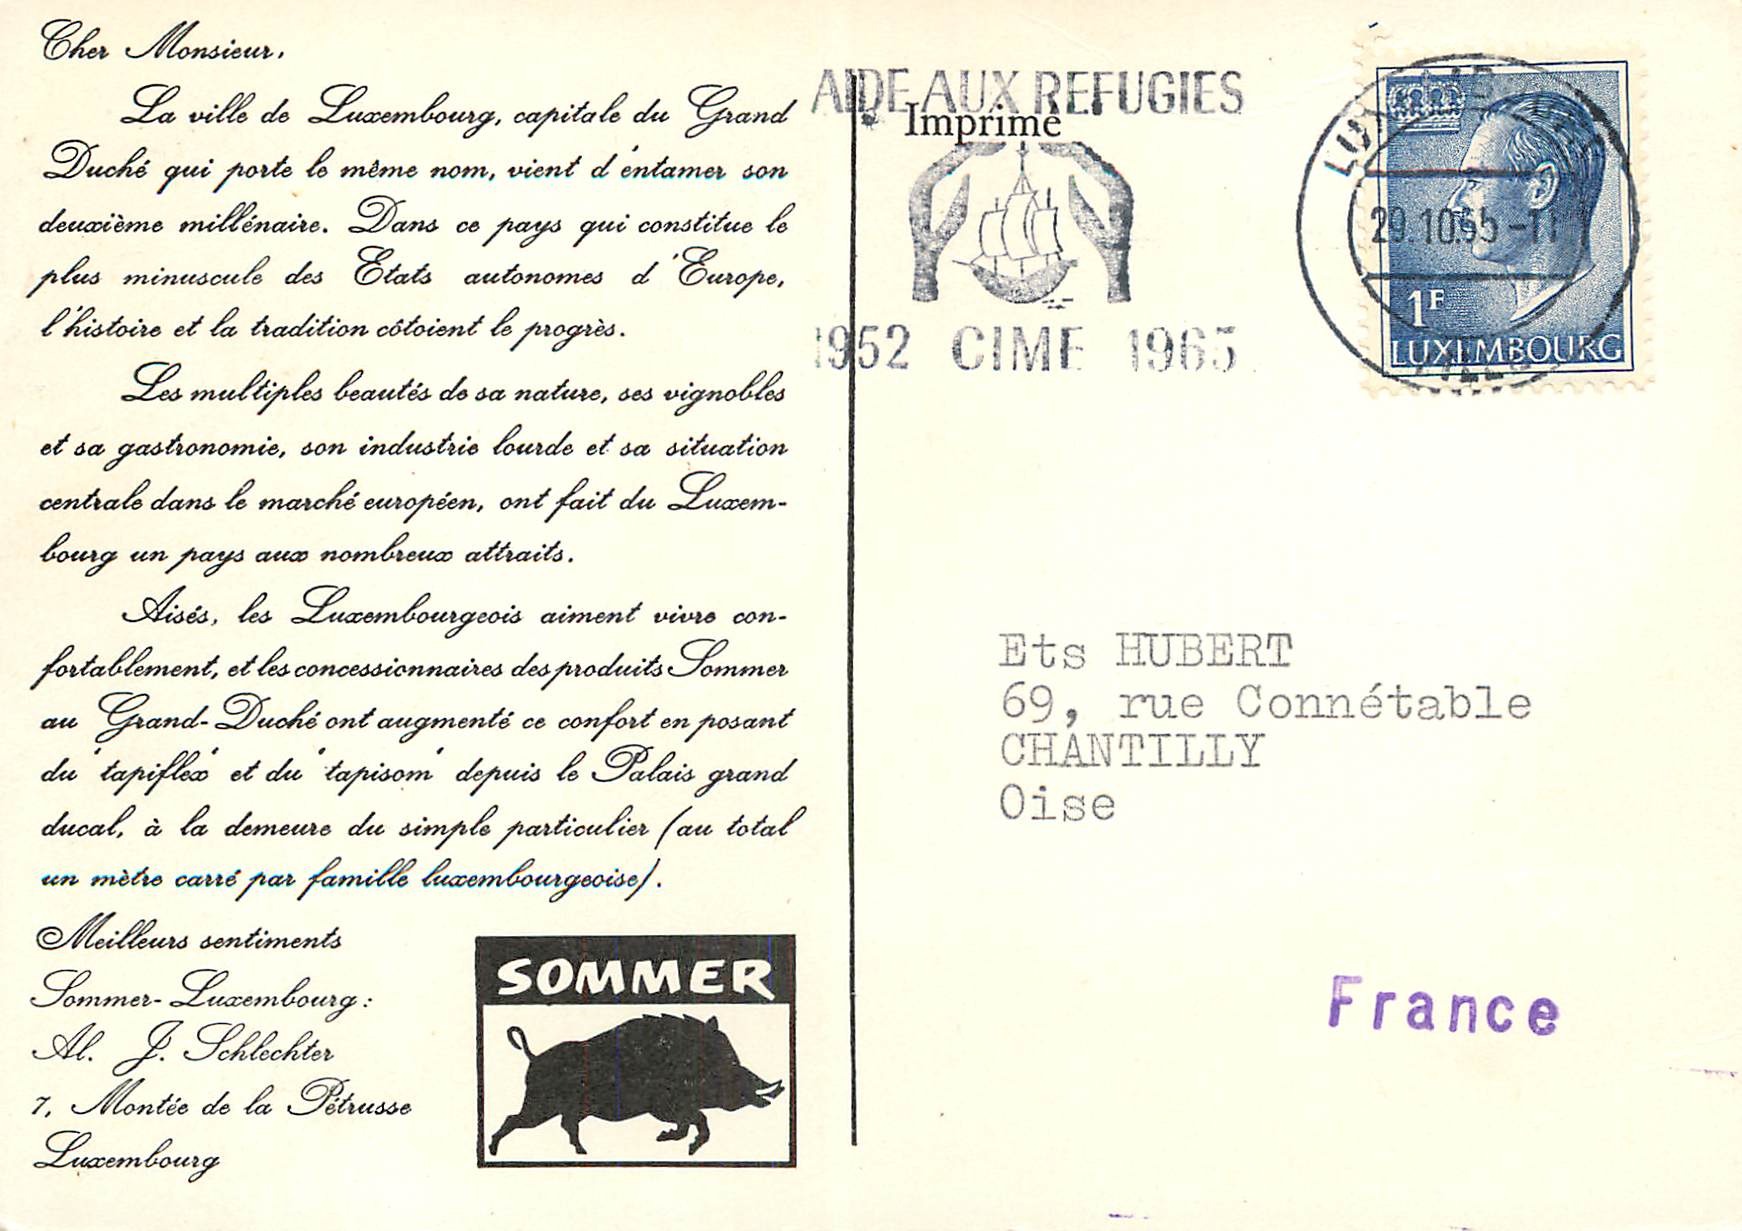 Cher Monsieur,
La ville de Luxembourg, capitale du Grand
Duché qui porte le même nom, vient d'entamer son
deuxième millénaire. Dans ce pays qui constitue le
plus minuscule des Etats autonomes d'Europe,
l'histoire et la tradition côtoient le progrès.
Les multiples beautés de sa nature, ses vignobles
et sa gastronomie, son industrie lourde et sa situation
centrale dans le marché européen, ont fait du Luxem-
bourg un pays aux nombreux attraits.
Aisés, les Luxembourgeois aiment vivre con-
fortablement, et les concessionnaires des produits Sommer
au Grand-Duché ont augmenté ce confort en posant
du "tapiflex" et du "tapisom" depuis le Palais grand
ducal, à la demeure du simple particulier (au total
un mètre carré par famille luxembourgeoise).
Meilleurs sentiments
Sommer-Luxembourg:
Al. J. Schlechter
7, Montée de la Pétrusse
Luxembourg
SOMMER
AIDE AUX REFUGIES
Imprimé
1952 CIME 1965
29.10.65-11
1F
LUXEMBOURG
Ets HUBERT
69, rue Connétable
CHANTILLY
Oise
France